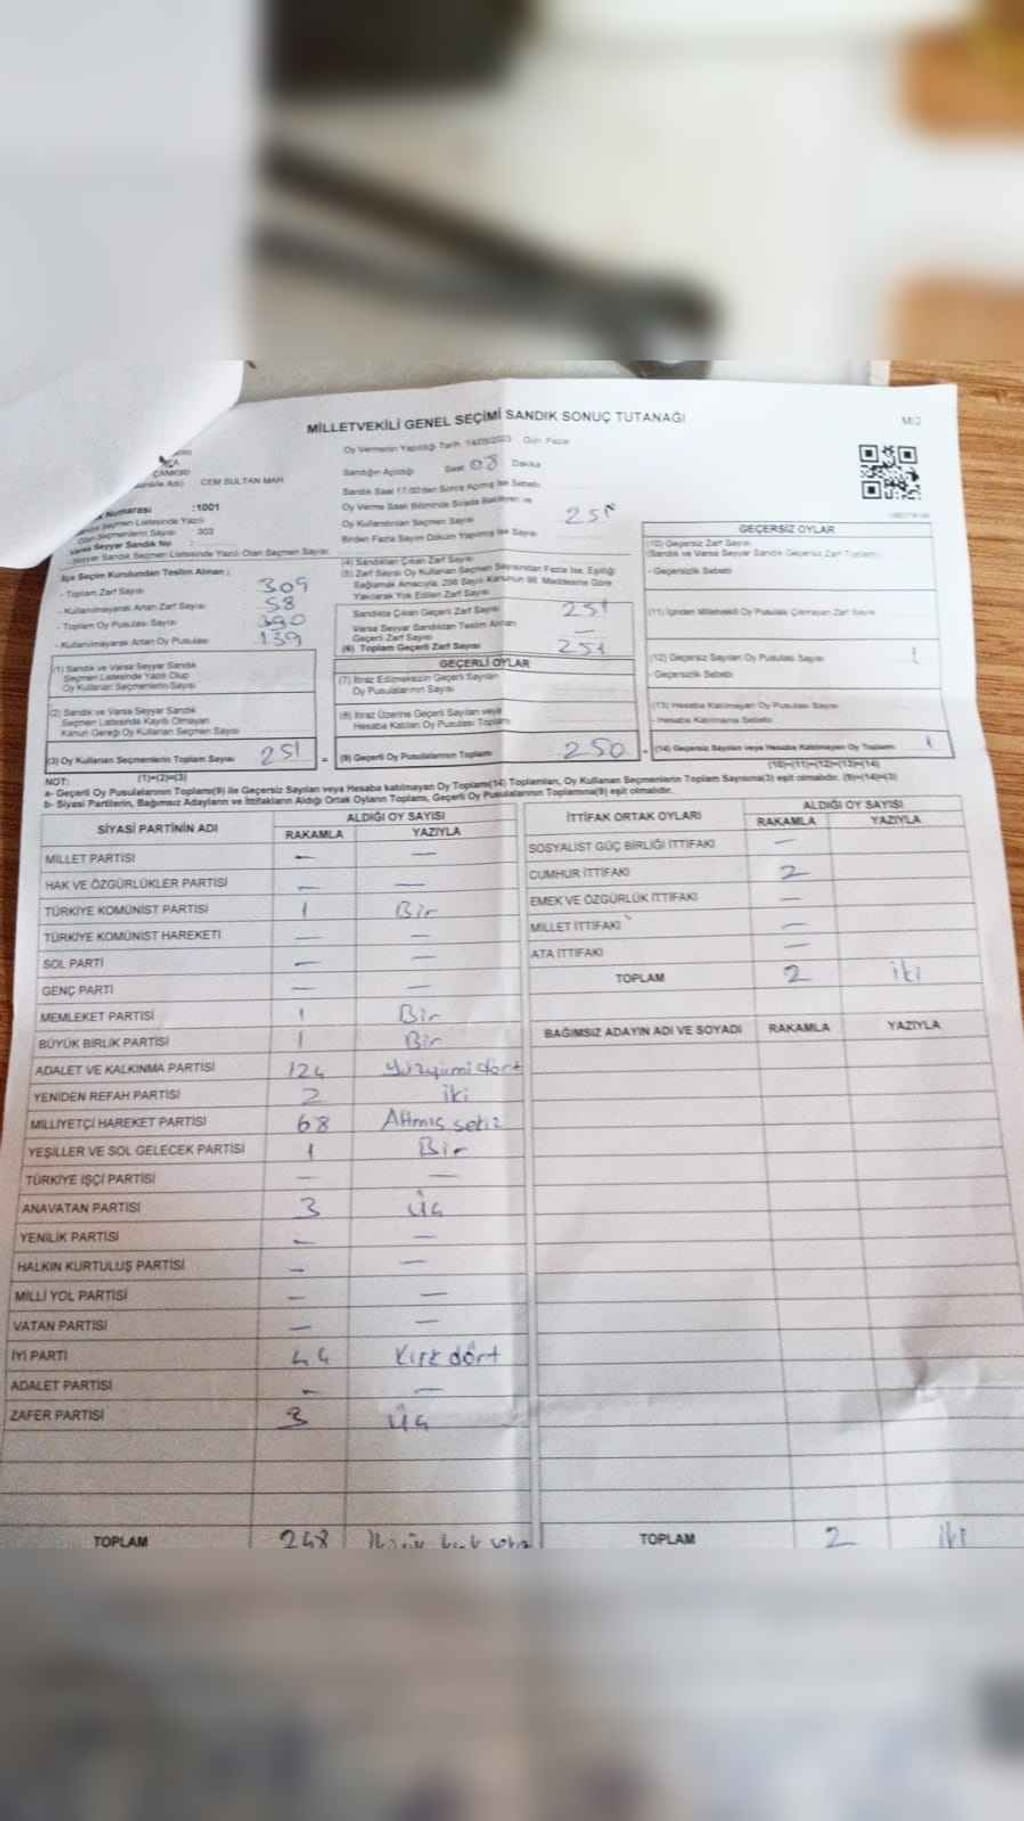 MİLLETVEKİLİ GENEL SEÇİMİ SANDIK SONUÇ TUTANAĞI
Oy Vermenin Yapıldığı Tarih 14/05/2023 Gün Pazar
ÇANKIRI
CEM SULTAN MAH
Sandığın Açıldığı Saat 08 Dakika
Numarası :1001
Oy Kullandırılan Seçmen Sayısı
251
303
Varsa Seyyar Sandık No
İlçe Seçim Kurulundan Teslim Alınan :
- Toplam Zarf Sayısı 309
- Kullanılmayarak Artan Zarf Sayısı 58
- Toplam Oy Pusulası Sayısı 390
- Kullanılmayarak Artan Oy Pusulası 139
(1) Sandık ve Varsa Seyyar Sandık
Seçmen Listesinde Yazılı Olup
Oy Kullanan Seçmenlerin Sayısı
(2) Sandık ve Varsa Seyyar Sandık
Seçmen Listesinde Kayıtlı Olmayan
Kanun Gereği Oy Kullanan Seçmen Sayısı
(3) Oy Kullanan Seçmenlerin Toplam Sayısı 251
(4) Sandıktan Çıkan Zarf Sayısı
Sandıkta Çıkan Geçerli Zarf Sayısı 251
Varsa Seyyar Sandıktan Teslim Alınan
Geçerli Zarf Sayısı —
(6) Toplam Geçerli Zarf Sayısı 251
GEÇERLİ OYLAR
(7) İtiraz Edilmeksizin Geçerli Sayılan
Oy Pusulalarının Sayısı
(8) İtiraz Üzerine Geçerli Sayılan veya
Hesaba Katılan Oy Pusulası Toplamı
(9) Geçerli Oy Pusulalarının Toplamı 250
GEÇERSİZ OYLAR
(10) Geçersiz Zarf Sayısı
- Geçersizlik Sebebi
(12) Geçersiz Sayılan Oy Pusulası Sayısı 1
- Geçersizlik Sebebi
(13) Hesaba Katılmayan Oy Pusulası Sayısı
- Hesaba Katılmama Sebebi
(14) Geçersiz Sayılan veya Hesaba Katılmayan Oy Toplamı 1
NOT: (1)+(2)=(3) (10)+(11)+(12)+(13)=(14)
a- Geçerli Oy Pusulalarının Toplamı(9) ile Geçersiz Sayılan veya Hesaba katılmayan Oy Toplamı(14) Toplamları, Oy Kullanan Seçmenlerin Toplam Sayısına(3) eşit olmalıdır. (9)+(14)=(3)
b- Siyasi Partilerin, Bağımsız Adayların ve İttifakların Aldığı Ortak Oyların Toplamı, Geçerli Oy Pusulalarının Toplamına(9) eşit olmalıdır.
SİYASİ PARTİNİN ADI ALDIĞI OY SAYISI
RAKAMLA YAZIYLA
MİLLET PARTİSİ — —
HAK VE ÖZGÜRLÜKLER PARTİSİ — —
TÜRKİYE KOMÜNİST PARTİSİ 1 Bir
TÜRKİYE KOMÜNİST HAREKETİ — —
SOL PARTİ — —
GENÇ PARTİ — —
MEMLEKET PARTİSİ 1 Bir
BÜYÜK BİRLİK PARTİSİ 1 Bir
ADALET VE KALKINMA PARTİSİ 124 Yüzyirmi dört
YENİDEN REFAH PARTİSİ 2 iki
MİLLİYETÇİ HAREKET PARTİSİ 68 Altmış sekiz
YEŞİLLER VE SOL GELECEK PARTİSİ 1 Bir
TÜRKİYE İŞÇİ PARTİSİ — —
ANAVATAN PARTİSİ 3 üç
YENİLİK PARTİSİ — —
HALKIN KURTULUŞ PARTİSİ — —
MİLLİ YOL PARTİSİ — —
VATAN PARTİSİ — —
İYİ PARTİ 44 Kırk dört
ADALET PARTİSİ — —
ZAFER PARTİSİ 3 üç
TOPLAM 248
İTTİFAK ORTAK OYLARI ALDIĞI OY SAYISI
RAKAMLA YAZIYLA
SOSYALİST GÜÇ BİRLİĞİ İTTİFAKI —
CUMHUR İTTİFAKI 2
EMEK VE ÖZGÜRLÜK İTTİFAKI —
MİLLET İTTİFAKI —
ATA İTTİFAKI —
TOPLAM 2 iki
BAĞIMSIZ ADAYIN ADI VE SOYADI RAKAMLA YAZIYLA
TOPLAM 2 iki